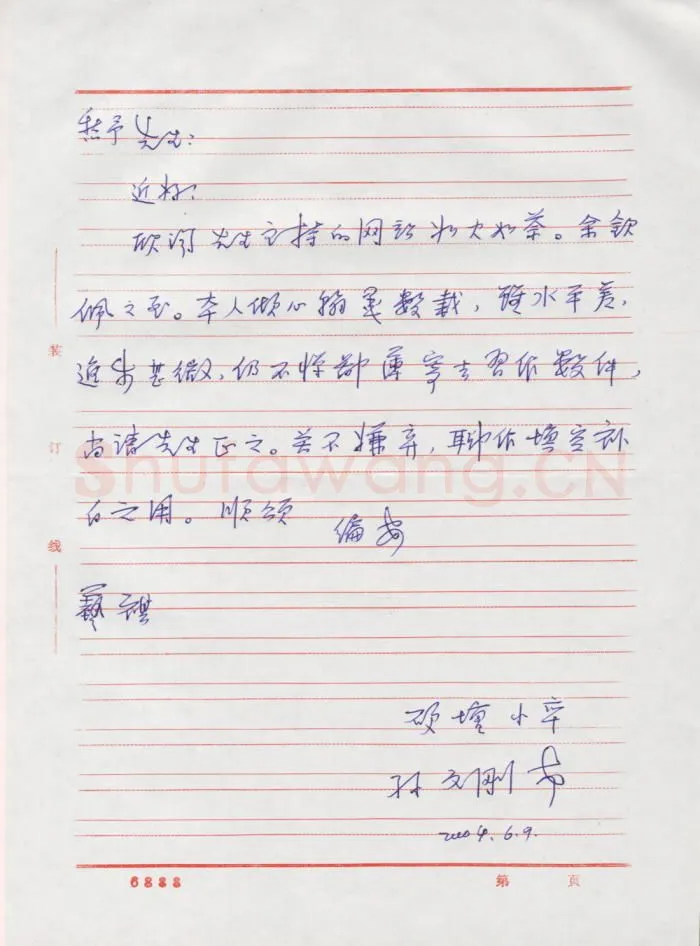 先生:
近好!
欣闻先生主持的网站如火如荼。余钦
佩之至。本人倾心翰墨数载,虽水平差,
进步甚微,仍不惮鄙薄寄去习作数件,
尚请先生正之。若不嫌弃,聊作填空补
白之用。顺颂
编安
艺祺
装
订
线
shufawang.CN
硕壇小卒
孙文刚
2004.6.9.
6888
第 页